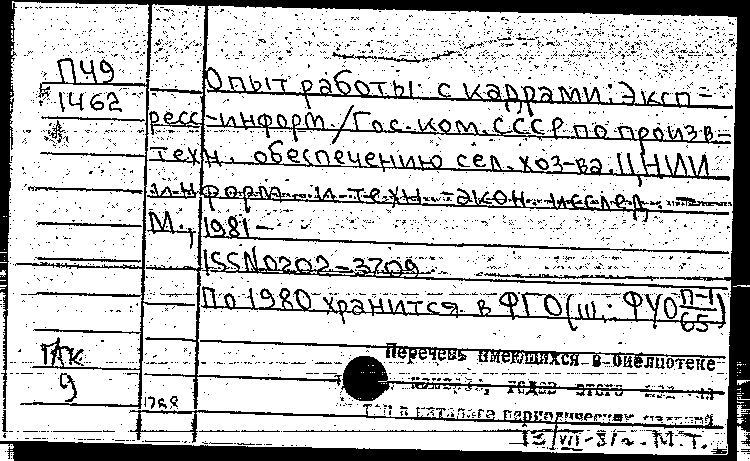 П49
1462
Опыт работы с кадрами: Эксп=
ресс-информ./Гос.ком.СССР по произв.=
техн. обеспечению сел.хоз-ва.ЦНИИ
информ. и техн.-экон. исслед.
М., 1981-
ISSN0202-3709
По 1980 хранится в ФГО(ш.: ФУО П-1/65)
ГАК
9
Перечень имеющихся в библиотеке
номеров, годов этого издания
см в каталоге периодических изданий
1268
13/VII-81г. М.Т.